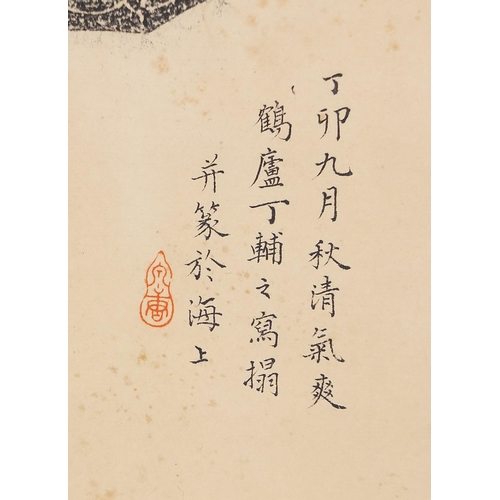 丁卯九月秋清氣爽
鶴廬丁輔之寫搨
并篆於海上